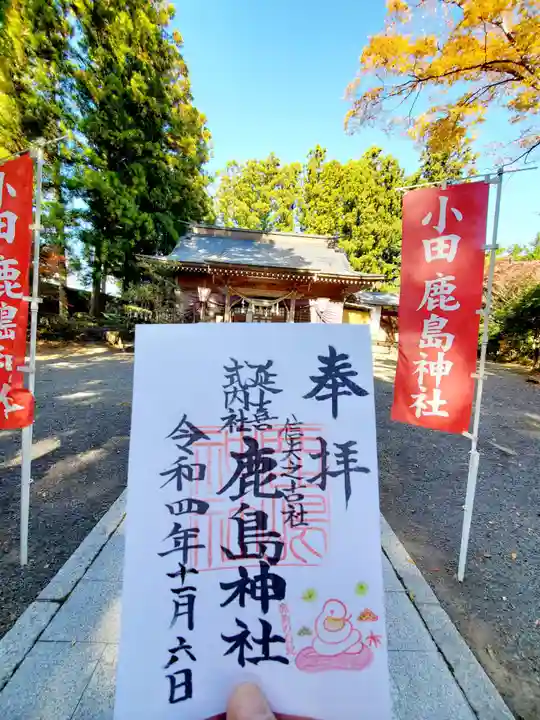 小田鹿島神社
小田鹿島神社
奉拝
信夫之古社
延喜
式内社
鹿島神社
令和四年十一月六日